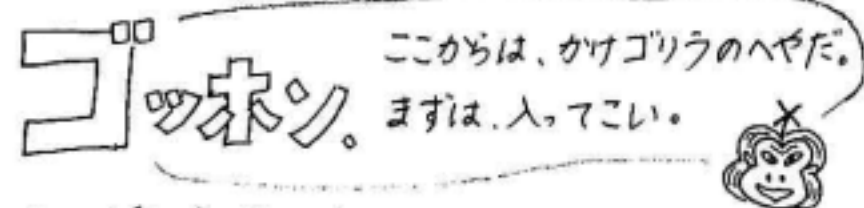 ゴッホン。
ここからは、かけゴリラのへやだ。
まずは、入ってこい。